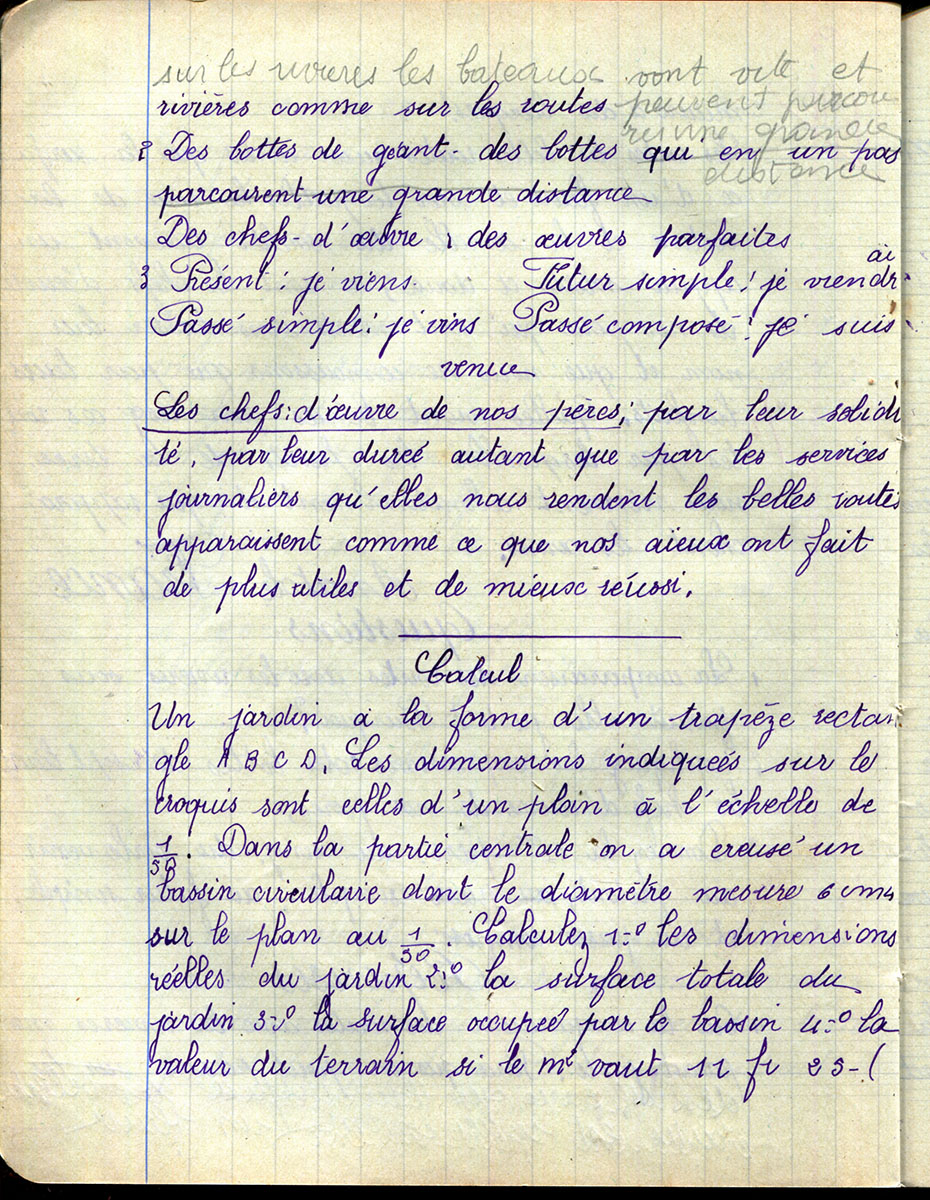 sur les rivières les bateaux vont vite et
rivières comme sur les routes peuvent parcou
rir une grande
2 Des bottes de géant - des bottes qui en un pas
distance
parcourent une grande distance
Des chefs-d'œuvre : des œuvres parfaites
3 Présent : je viens. Futur simple : je viendrai
Passé simple : je vins Passé composé : je suis
venue
Les chefs-d'œuvre de nos pères ; par leur solidi
té, par leur dureé autant que par les services
journaliers qu'elles nous rendent les belles routes
apparaissent comme ce que nos aïeux ont fait
de plus utiles et de mieux réussi.
Calcul
Un jardin a la forme d'un trapèze rectan
gle A B C D. Les dimensions indiqueés sur le
croquis sont celles d'un plain à l'échelle de
1/50. Dans la partie centrale on a creusé un
bassin circularie dont le diamètre mesure 6 cm
sur le plan au 1/50. Calculez 1-º les dimensions
réelles du jardin 2-º la surface totale du
jardin 3-º la surface occupeé par le bassin 4-º la
valeur du terrain si le m² vaut 12 fr 25 - (